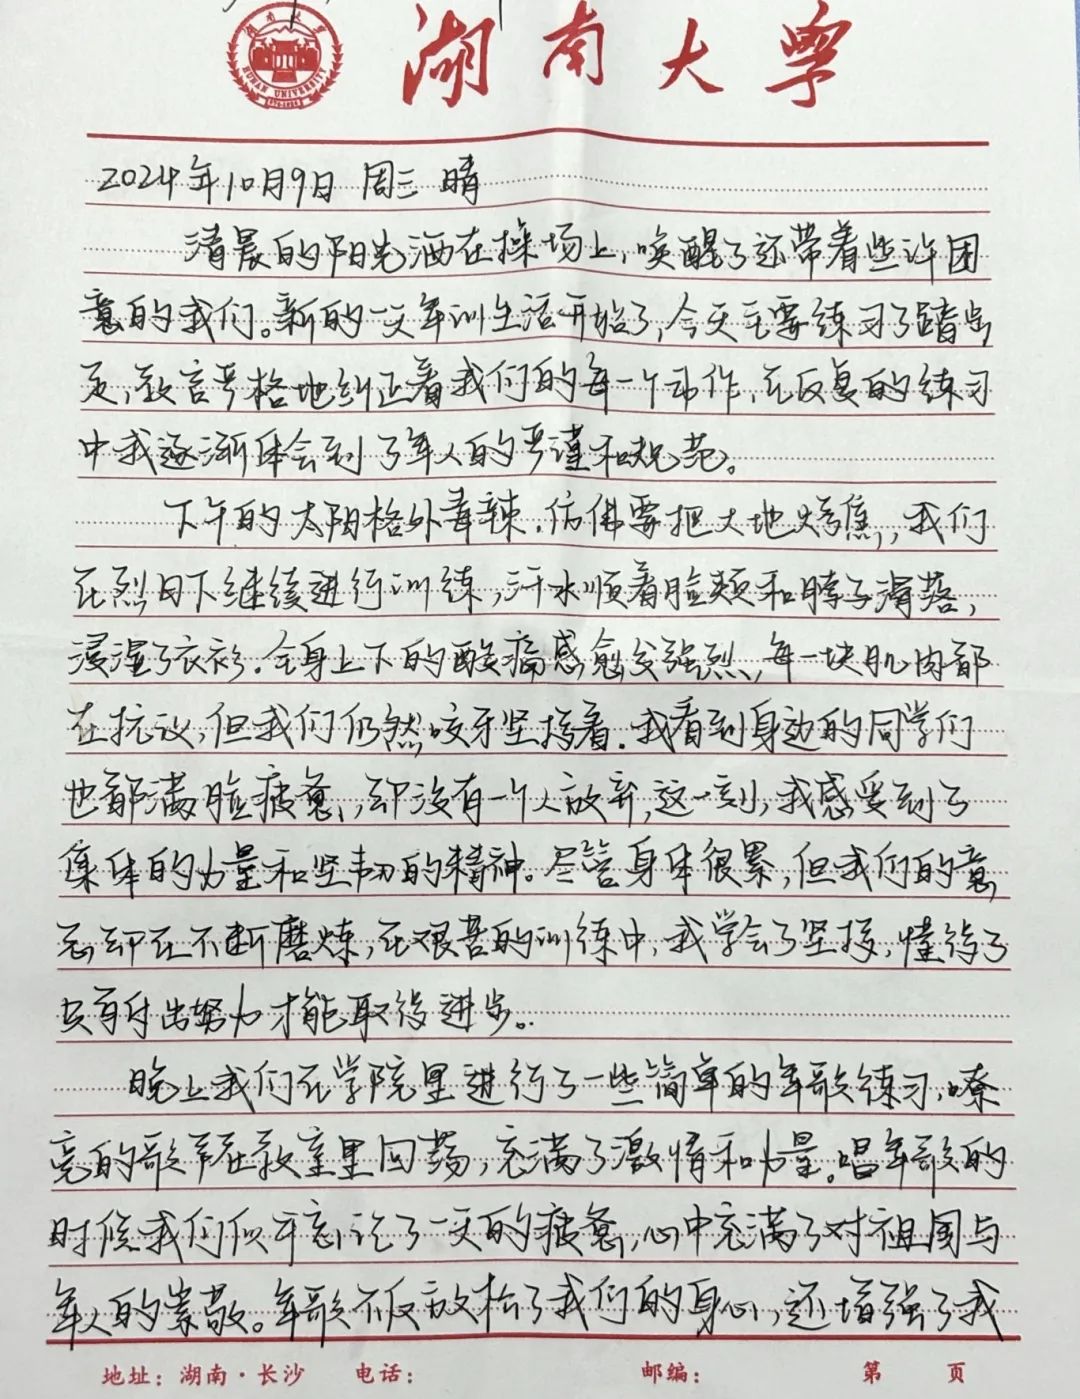 湖南大学
HUNAN UNIVERSITY
2024年10月9日 周三 晴
清晨的阳光洒在操场上，唤醒了还带着些许困
意的我们。新的一天军训生活开始了，今天主要练习了踏步
走，教官严格地纠正着我们的每一个动作，在反复的练习
中我逐渐体会到了军人的严谨和规范。
下午的太阳格外毒辣，仿佛要把大地烤焦，我们
在烈日下继续进行训练，汗水顺着脸颊和脖子滑落，
浸湿了衣衫。全身上下的酸痛感愈发强烈，每一块肌肉都
在抗议，但我们仍然咬牙坚持着。我看到身边的同学们
也都满脸疲惫，却没有一个人放弃，这一刻，我感受到了
集体的力量和坚韧的精神。尽管身体很累，但我们的意
志却在不断磨炼，在艰苦的训练中，我学会了坚持，懂得了
只有付出努力才能取得进步。
晚上我们在学院里进行了一些简单的军歌练习，嘹
亮的歌声在教室里回荡，充满了激情和力量。唱军歌的
时候我们似乎忘记了一天的疲惫，心中充满了对祖国与
军人的崇敬。军歌不仅放松了我们的身心，还增强了我
地址：湖南·长沙 电话： 邮编： 第 页